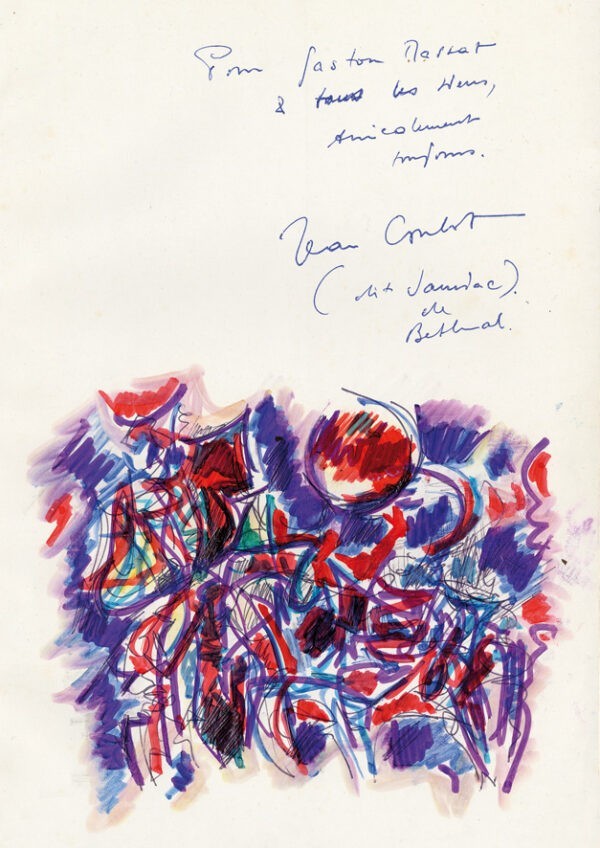 Pour Gaston Massat
& tous les siens,
Amicalement
toujours.
Jean Coulot
(dit
de
Bethmal.